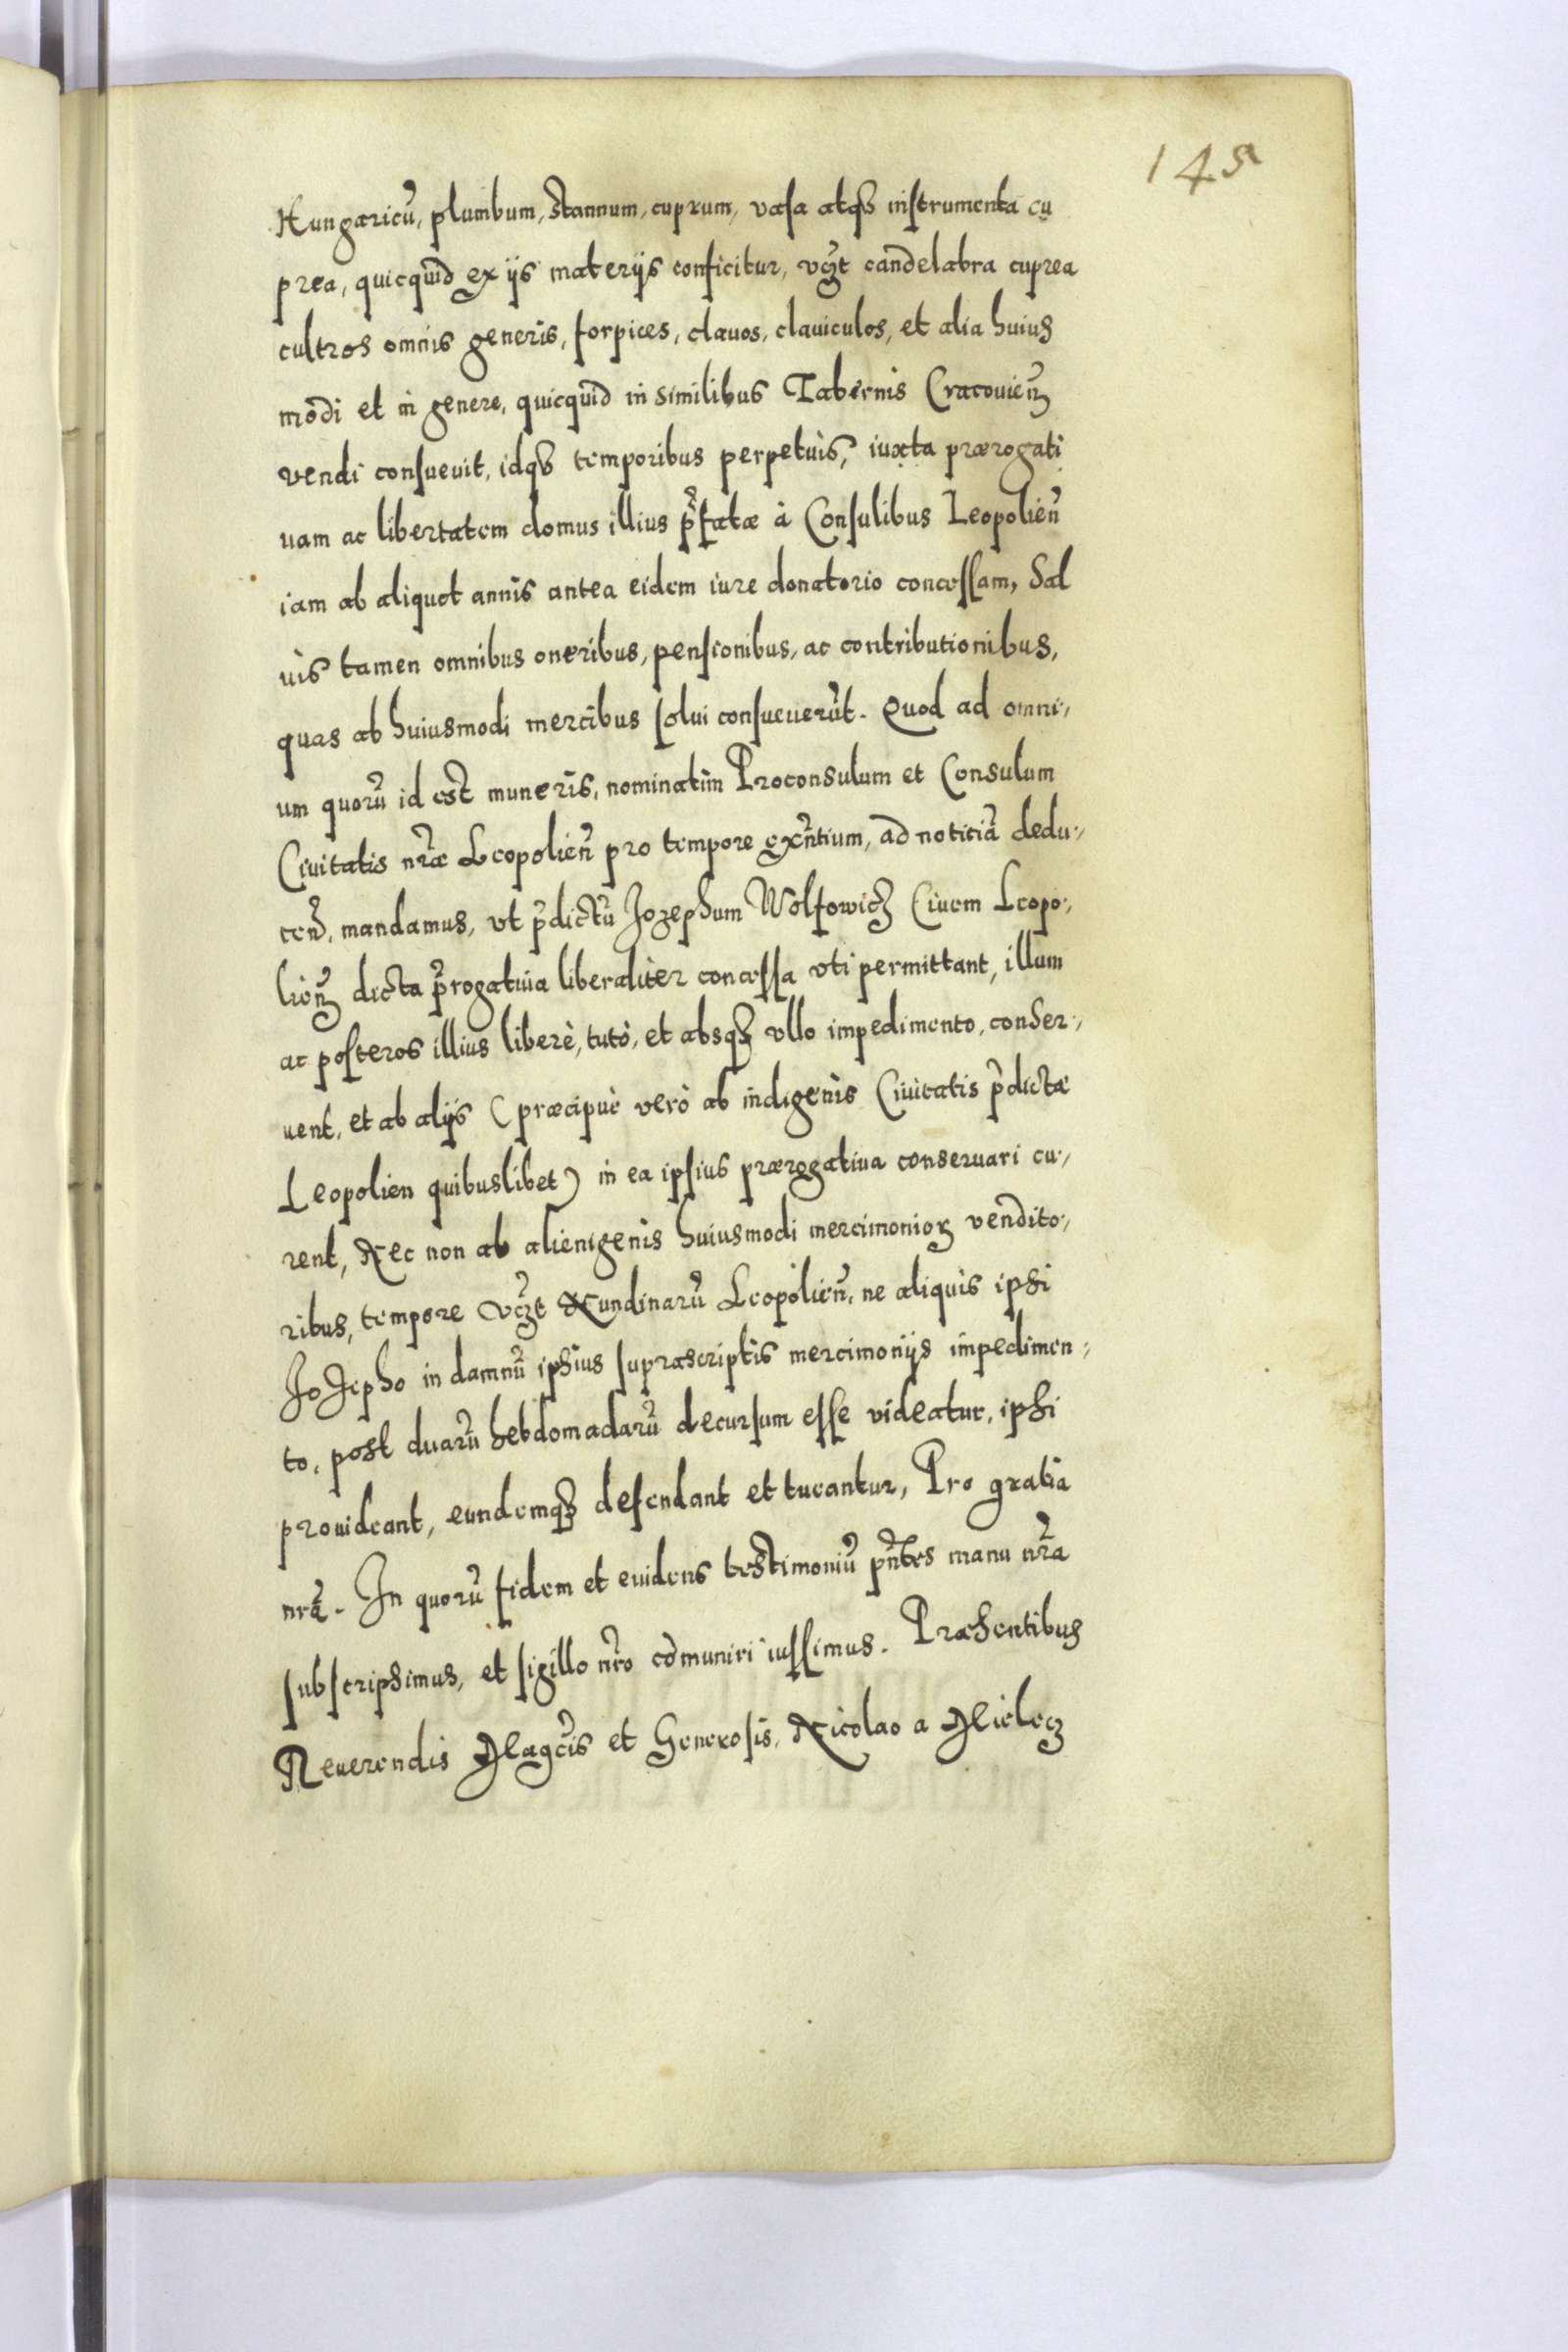 145
Hungaricũ, plumbum, stannum, cuprum, vasa atqȝ instrumenta cu
prea, quicquid ex ijs materijs conficitur, vcȝt candelabra cuprea
cultros omnis generis, forpices, clauos, clauiculos, et alia huius
modi et in genere, quicquid in similibus Tabernis Cracouien̄
vendi consueuit, idqȝ temporibus perpetuis, iuxta prærogati
uam ac libertatem domus illius p̃fatæ à Consulibus Leopolien̄
iam ab aliquot annis antea eidem iure donatorio concessam, Sal
uis tamen omnibus oneribus, pensionibus, ac contributionibus,
quas ab huiusmodi mercibus solui consueuerũt. Quod ad omni,,
um quorũ id est muneris, nominatim Proconsulum et Consulum
Ciuitatis nr̃æ Leopolien̄ pro tempore exñtium, ad noticiã dedu,,
cen̄, mandamus, vt p̃dictũ Jozephum Wolfowicz Ciuem Leopo,,
lien̄ dicta p̃rogatiuia liberaliter concessa vti permittant, illum
ac posteros illius liberè, tutò, et absqȝ vllo impedimento, conser,,
uent, et ab alijs (præcipuè verò ab indigenis Ciuitatis p̃dictæ
Leopolien quibuslibet) in ea ipsius prærogatiua conseruari cu,,
rent, Nec non ab alienigenis huiusmodi mercimonioꝝ vendito,,
ribus, tempore vcȝt Nundinarũ Leopolien̄, ne aliquis ipsi
Jozepho in damnũ ipsius suprascriptis mercimonijs impedimen,,
to, post duarũ hebdomadarũ decursum esse videatur, ipsi
prouideant, eundemqȝ defendant et tueantur, Pro gratia
nr̃ã. In quorũ fidem et euidens testimoniũ pñtes manu nr̃a
subscripsimus, et sigillo nr̃o cõmuniri iussimus. Præsentibus
Reuerendis Magcis et Generosis, Nicolao a Mielecz